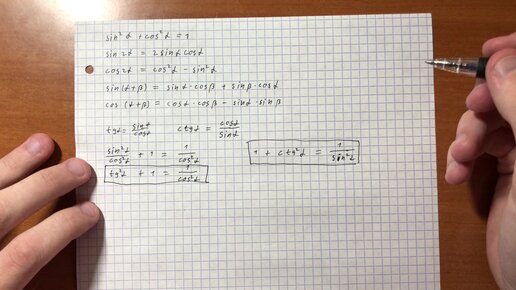 sin²α + cos²α = 1
sin 2α = 2sinα cosα
cos2α = cos²α - sin²α
sin(α+β) = sinα·cosβ + sinβ·cosα
cos(α+β) = cosα·cosβ - sinα·sinβ
tgα = sinα/cosα ctgα = cosα/sinα
sin²α/cos²α + 1 = 1/cos²α 1 + ctg²α = 1/sin²α
tg²α + 1 = 1/cos²α